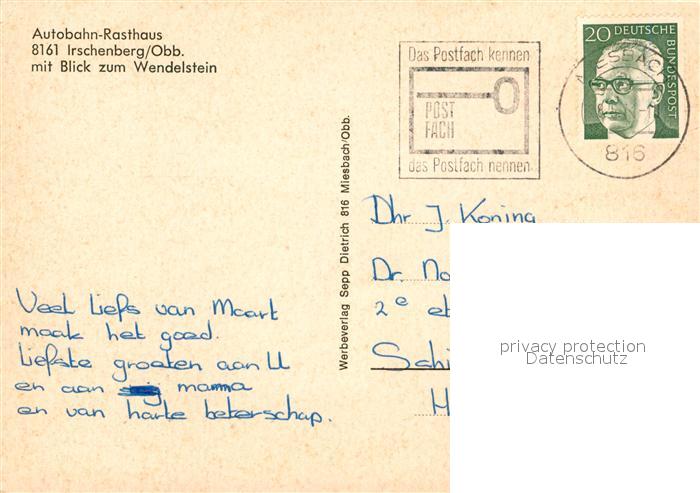 Autobahn-Rasthaus
8161 Irschenberg/Obb.
mit Blick zum Wendelstein
Das Postfach kennen
POST
FACH
das Postfach nennen
MIESBACH
816
20 DEUTSCHE
BUNDESPOST
Werbeverlag Sepp Dietrich 816 Miesbach/Obb.
Dhr J. Koning
Dr. No
2e et
Schi
H
privacy protection
Datenschutz
Veel liefs van Maart
maak het goed.
Liefste groeten aan U
en aan mamma
en van harte beterschap.